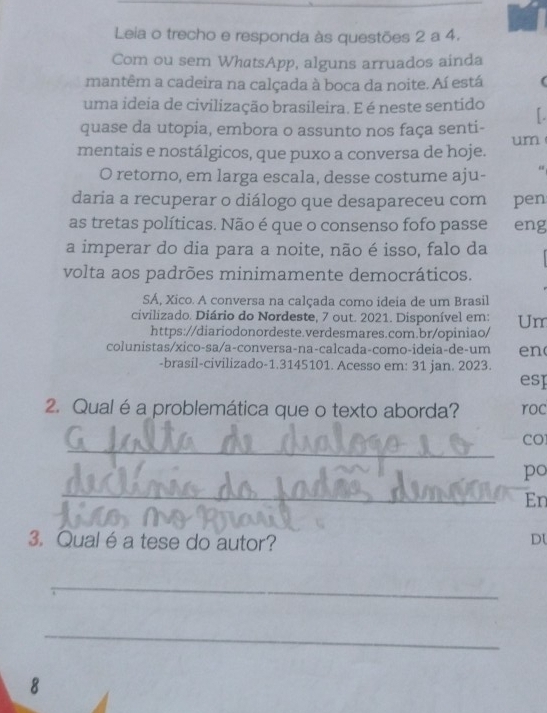 Leia o trecho e responda às questões 2 a 4.
Com ou sem WhatsApp, alguns arruados ainda
mantêm a cadeira na calçada à boca da noite. Aí está
uma ideia de civilização brasileira. E é neste sentido
quase da utopia, embora o assunto nos faça senti-
mentais e nostálgicos, que puxo a conversa de hoje.
O retorno, em larga escala, desse costume aju-
daria a recuperar o diálogo que desapareceu com
as tretas políticas. Não é que o consenso fofo passe
a imperar do dia para a noite, não é isso, falo da
volta aos padrões minimamente democráticos.
SÁ, Xico. A conversa na calçada como ideia de um Brasil
civilizado. Diário do Nordeste, 7 out. 2021. Disponível em:
https://diariodonordeste.verdesmares.com.br/opiniao/
colunistas/xico-sa/a-conversa-na-calcada-como-ideia-de-um
-brasil-civilizado-1.3145101. Acesso em: 31 jan. 2023.
2. Qual é a problemática que o texto aborda?
A falta de dialogo e o
declínio do padrões democra
ticos no Brasil.
3. Qual é a tese do autor?
8
um
pen
eng
Um
enc
esp
roc
co
po
En